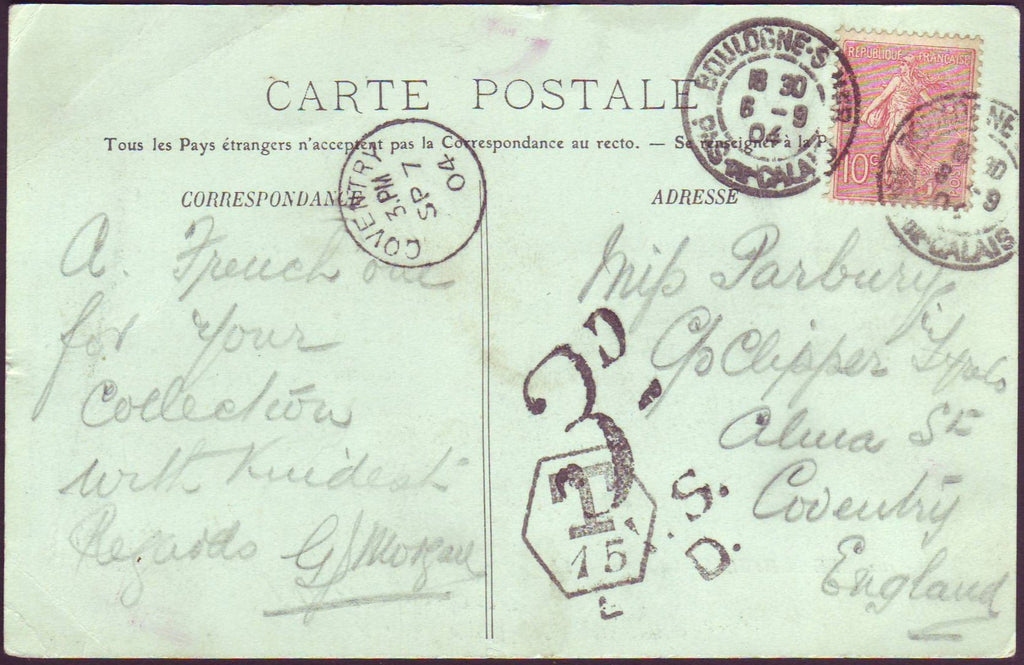 CARTE POSTALE
Tous les Pays étrangers n'acceptent pas la Correspondance au recto. — Se renseigner à la P
CORRESPONDANCE
ADRESSE
BOULOGNE-S-MER
18 30
6 -9
04
PAS-DE-CALAIS
REPUBLIQUE FRANÇAISE
10c
COVENTRY
3.PM
SP 7
04
A. French one
for Your
Collection
with Kindest
Regards GJ Morgan
Miss Parbury
C/o Clipper Tyre Co
Alma St
Coventry
England
3D
T
15
D.S.